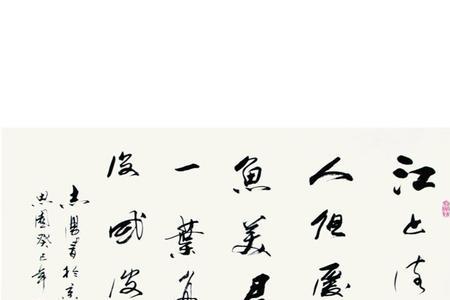 江上往
人但愛
魚美君
一葉舟
沒風波
書於京
癸巳年